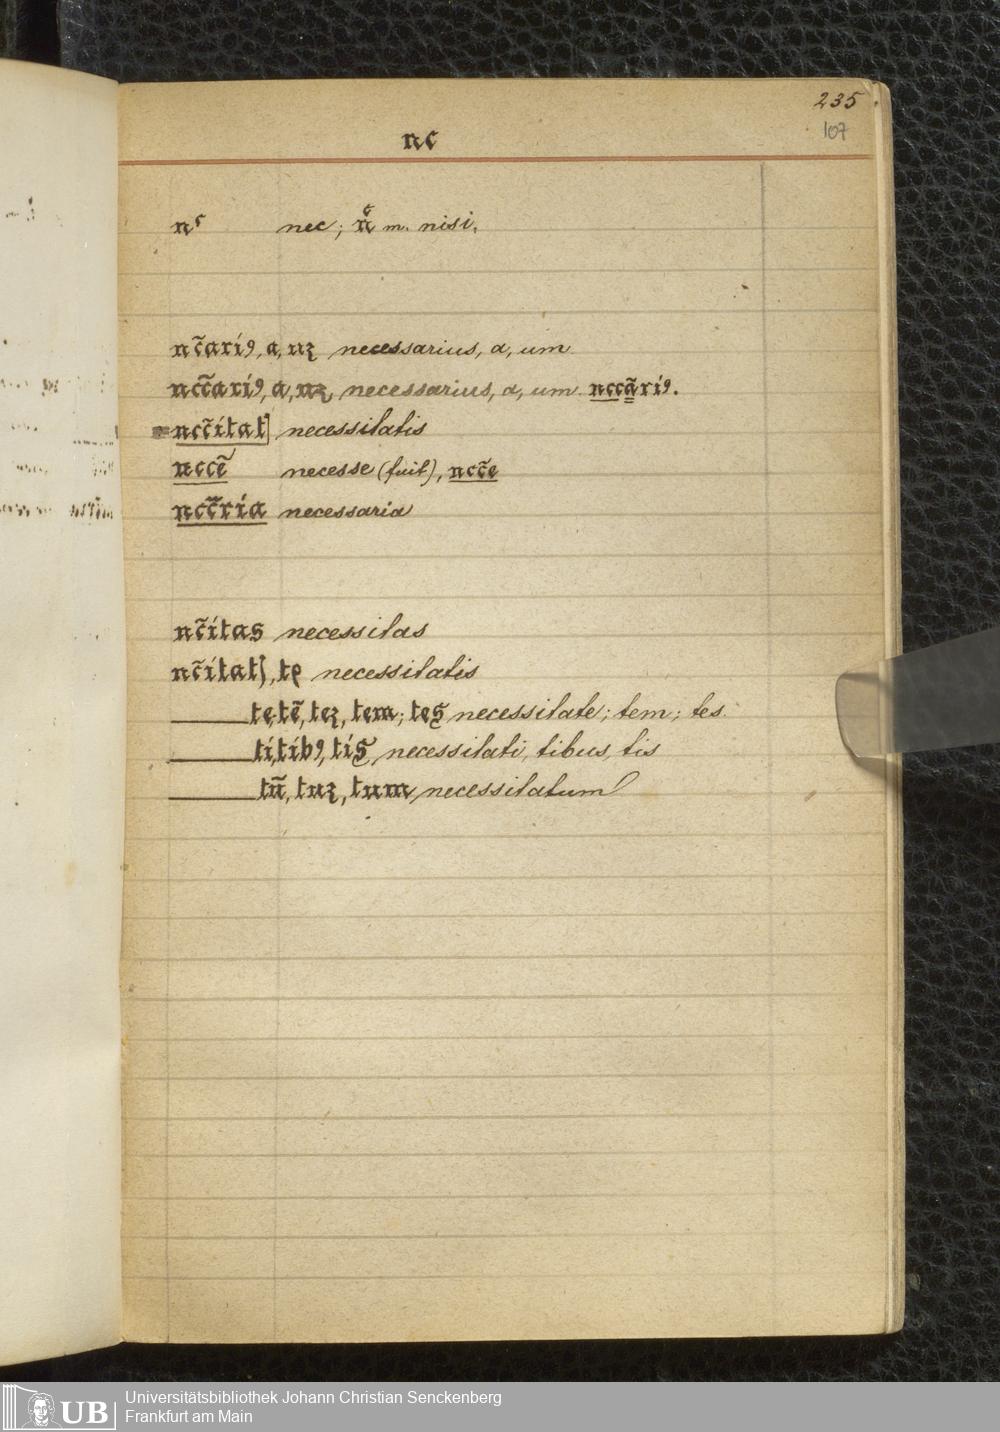 235
107
nc
nᶜ nec; n̆ᶜ m. nisi.
nc̃ariꝰ, a, uꝫ necessarius, a, um
ncc̃ariꝰ, a, uꝫ, necessarius, a, um nccãriꝰ.
ncc̃itatꝭ necessitatis
nccẽ necesse (fuit), ncc̃e
ncc̃ria necessaria
nc̃itas necessitas
nc̃itatꝭ, tꝭ necessitatis
te, tẽ, teꝫ, tem; tes necessitate; tem; tes
ti, tibꝰ, tis necessitati, tibus, tis
tũ, tuꝫ, tum necessitatum
UB
Universitätsbibliothek Johann Christian Senckenberg
Frankfurt am Main